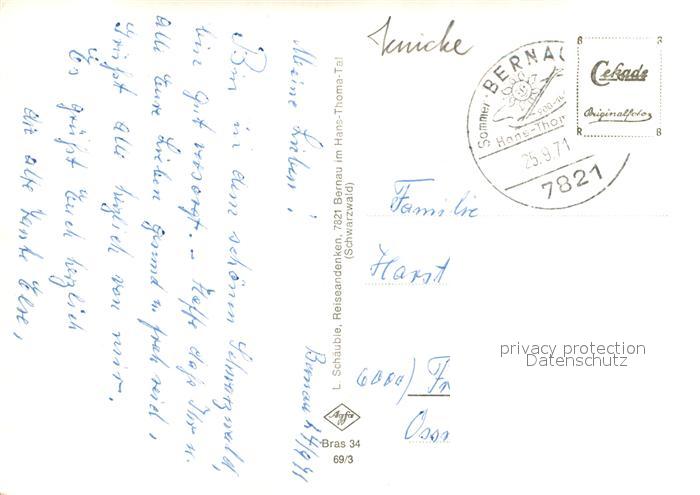 Jenicke
Sommer BERNAU
900-
Hans-Thom
25.9.71
7821
Cekade
Originalfoto
Familie
Harst
6000) Fr
Oss
privacy protection
Datenschutz
L. Schäuble, Reiseandenken, 7821 Bernau im Hans-Thoma-Tal
(Schwarzwald)
Agfa
Bras 34
69/3
Bernau 24/9 71
Meine Lieben!
Bin in dem schönen Schwarzwald,
bin gut versorgt. - Hoffe daß Ihr u.
alle Eure Lieben gesund u. froh seid,
Grüßt alle herzlich von mir.
Es grüßt Euch herzlich
die alte Tante Else,